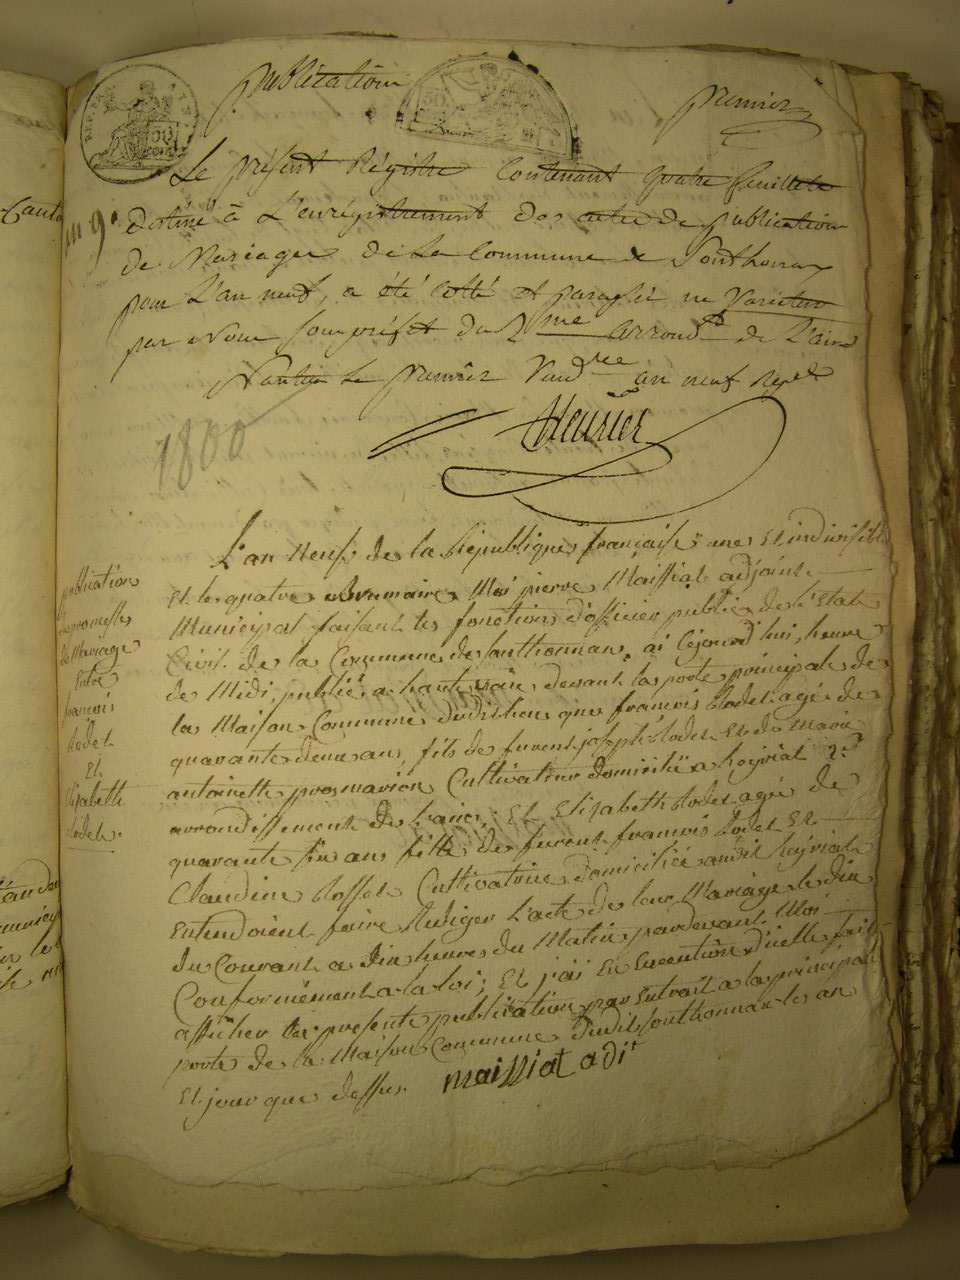 publication
premier
Le présent Régistre Contenant quatre feuillets
an 9e destiné à L'enrégistrement des actes de publication
de Mariages de La Commune de Sonthonnax
pour L'an neuf, a été Cotté et paraphé ne Varietur
par Nous Souspréfet du 2me arrondt de L'ain
Nantua Le premier Vendre an neuf Repn
1800
L'an Neuf de la République française une Et indivisible
Et le quatre Brumaire Moi pierre Maissiat adjoint
Municipal faisant les fonctions d'officier public de l'Etat
Civil de la Commune de Sonthonnax, ai Cejourd'hui, heure
de Midi, publié a haute voix devant la porte principale de
la Maison Commune dudit lieu que françois Rodet agé de
quarante deux ans, fils de furent joseph Rodet Et de Marie
antoinette promarion Cultivateur domicilié a heyriat 2e
arrondissement de l'ain, Et Elizabeth Rodet agée de
quarante six ans fille de furent francois Rodet Et
Claudine Cultivatrice domiciliée audit heyriat
Entendoient faire Rediger L'acte de leur Mariage le dix
du Courant a dix heures du Matin pardevant Moi
Conformément a la loi; Et j'ai En Execution d'icelle fait
afficher la presente publication par Extrait a la principale
porte de la Maison Commune dudit Sonthonnax les an
Et jour que dessus. maissiat adjt
publication
de promesse
de Mariage
Entre
francois
Rodet
Et
Elizabeth
Rodet.